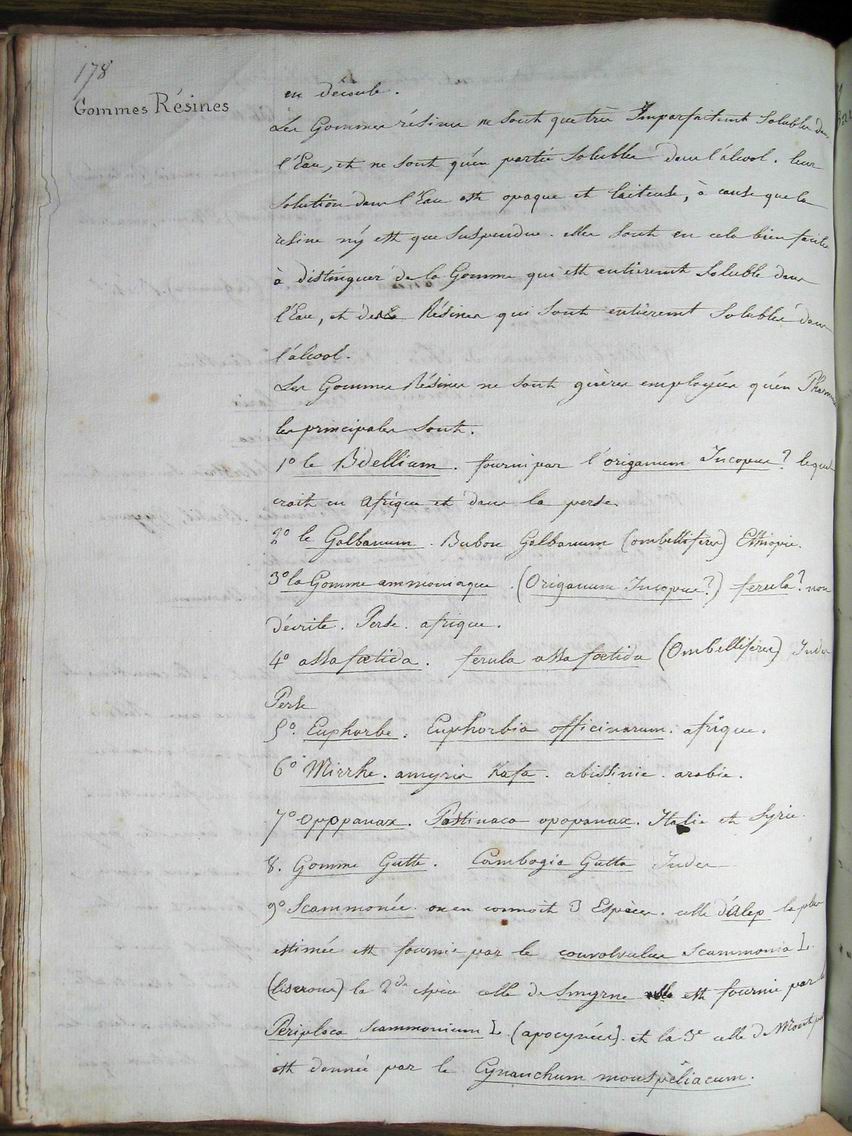 178
Gommes Résines
en découle.
Les Gommes résines ne sont que très Imparfaitemt solubles dans
l'Eau, et ne sont qu'en partie solubles dans l'alcool. leur
solution dans l'Eau est opaque et laiteuse, à cause que la
résine n'y est que suspendue. elles sont en cela bien facile
à distinguer de la Gomme qui est entièremt soluble dans
l'Eau, et des Résines qui sont entièremt solubles dans
l'alcool.
Les Gommes Résines ne sont guères employées qu'en
les principales sont.
1° le Bdellium. fourni par l'origanum Incopue? lequel
croit en afrique et dans la perse
2° le Galbanum. Bubon Galbanum (ombellifères) Ethiopie.
3° la Gomme ammoniaque. (Origanum Incopue?) ferula? non
décrite. Perse. afrique.
4° assa fœtida. ferula assa fœtida (Ombellifères) Indes
Perse
5°. Euphorbe. Euphorbia officinarum. afrique.
6° Mirrhe. amyris Kafa. abissinie. arabie.
7° Oppopanax. Pastinaca opopanax. Italie et Syrie
8. Gomme Gutte. Cambogia Gutta Indes
9° Scammonée. on en connoit 3 Espèces. celle d'alep la plus
estimée est fournie par le convolvulus scammonia L.
(liserons) la 2de espèce celle de Smyrne est fournie par le
Periploca scammonium L (apocynées). et la 3e celle de
est donnée par le Cynanchum monspeliacum.